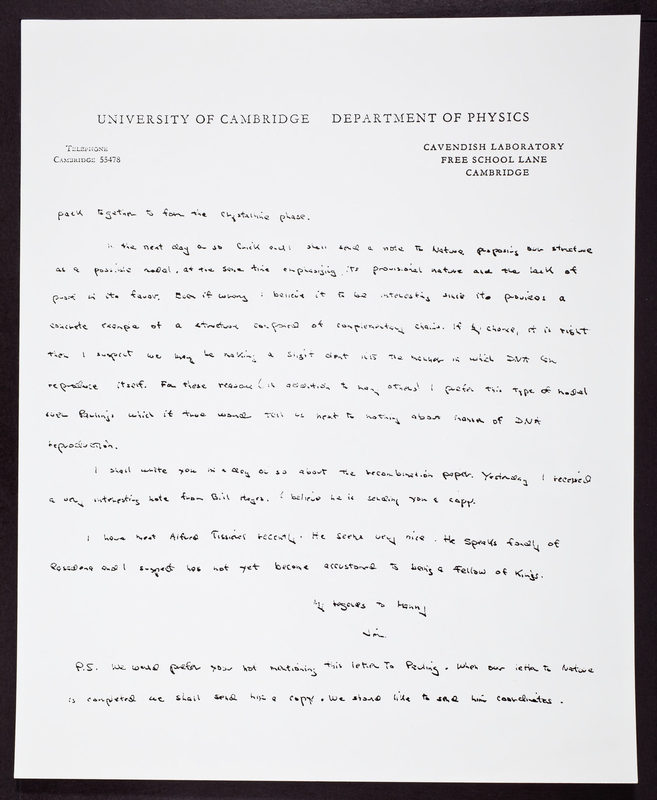 UNIVERSITY OF CAMBRIDGE DEPARTMENT OF PHYSICS
TELEPHONE
CAMBRIDGE 55478
CAVENDISH LABORATORY
FREE SCHOOL LANE
CAMBRIDGE
pack together to form the crystalline phase.
In the next day or so Crick and I shall send a note to Nature proposing our structure
as a possible model, at the same time emphasizing its provisional nature and the lack of
proof in its favor. Even if wrong I believe it to be interesting since it provides a
concrete example of a structure composed of complementary chains. If by chance, it is right
then I suspect we may be making a slight dent into the manner in which DNA can
reproduce itself. For these reasons (in addition to many others) I prefer this type of model
over Pauling's which if true would tell us next to nothing about manner of DNA
reproduction.
I shall write you in a day or so about the recombination paper. Yesterday I received
a very interesting note from Bill Hayes. I believe he is sending you a copy.
I have met Alfred Tissieres recently. He seems very nice. He speaks fondly of
Pasadena and I suspect has not yet become accustomed to being a Fellow of Kings.
My regards to Manny
Jim
P.S. We would prefer your not mentioning this letter to Pauling. When our letter to Nature
is completed we shall send him a copy. We should like to send him coordinates.